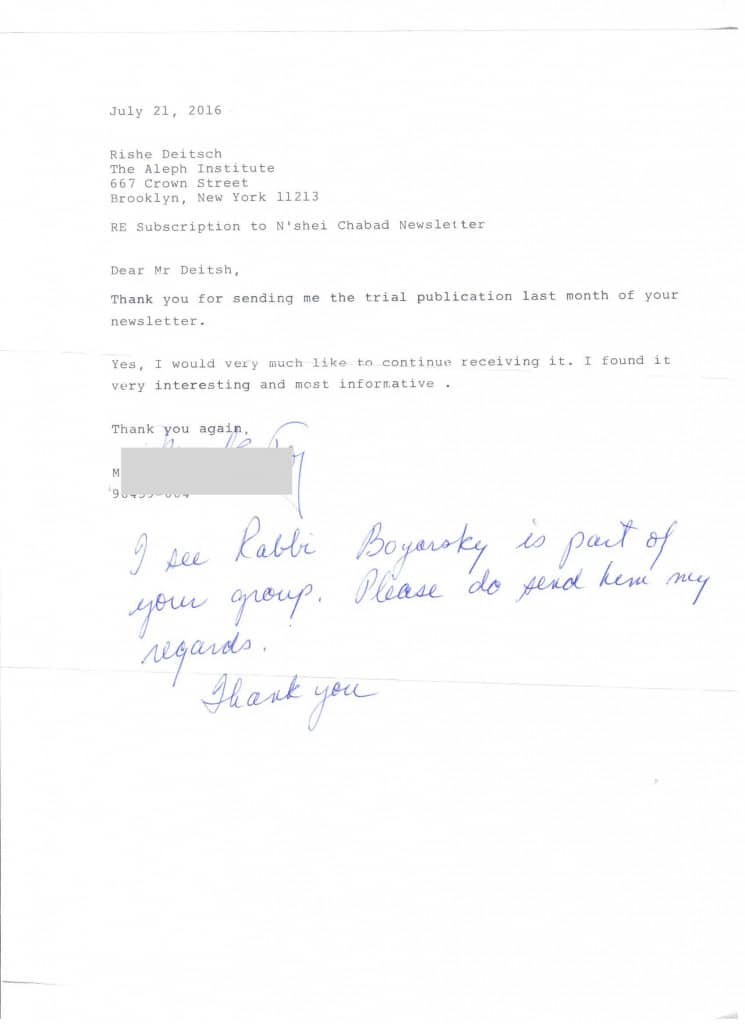 July 21, 2016
Rishe Deitsch
The Aleph Institute
667 Crown Street
Brooklyn, New York 11213
RE Subscription to N'shei Chabad Newsletter
Dear Mr Deitsh,
Thank you for sending me the trial publication last month of your
newsletter.
Yes, I would very much like to continue receiving it. I found it
very interesting and most informative .
Thank you again,
M
I see Rabbi Boyarsky is part of
your group. Please do send him my
regards.
Thank you